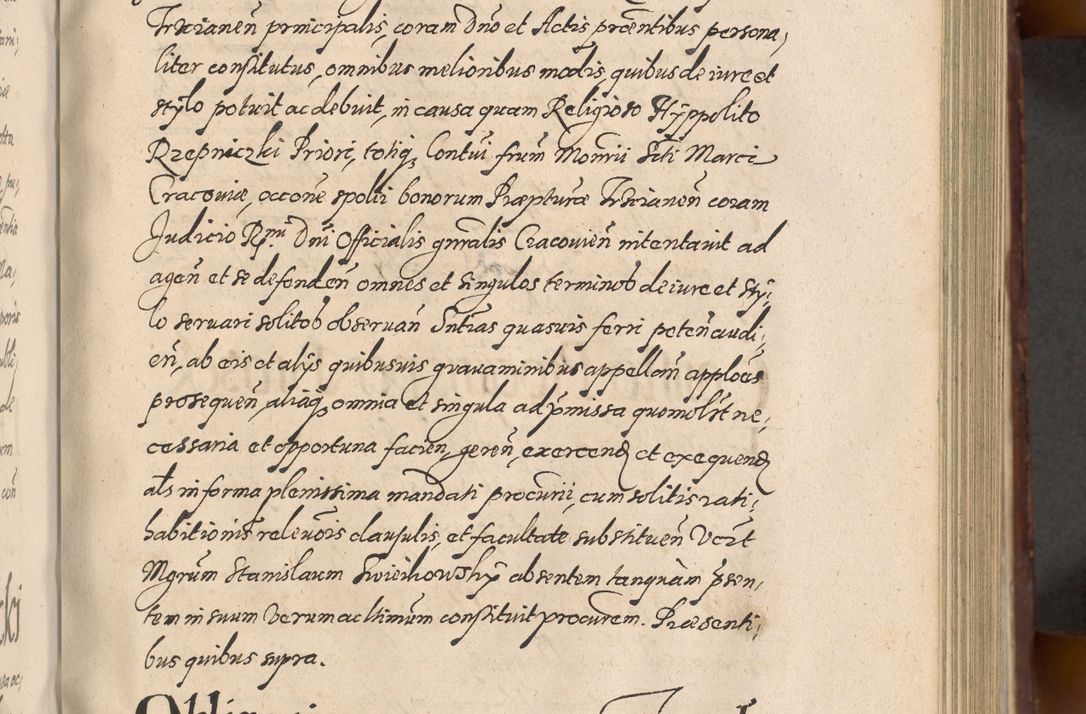 Trcianeñ principalis, coram Dño et Actis prõentibus persona,
liter constitutus, omnibus melioribus modis, quibus de iure et
stÿlo potuit ac debuit, in causa quam Religioso Hÿppolito
Rzepniczki Priori, totiq; Contui frum Monrii Scti Marci
Cracoviæ, occõne spolii bonorum Præpturæ Trcianeñ coram
Judicio Rmi Dñi Officialis gnralis Cracovieñ intentavit ad
ageñ et se defendeñ omnes et singulos terminos de iure et stÿ,
lo servari solitos observañ Sntias quasvis ferri peteñ audi,
eñ, ab eis et alijs quibusvis gravaminibus appellañ applões
prosequeñ, aliaq; omnia et singula ad pmissa quomolbt ne,
cessaria et opportuna facieñ, gereñ, exercend et exequend
als in forma plenissima mandati procurii, cum solitis rati,
habitionis relevõis clausulis, et facultate substitueñ Vert
Mgrum Stanislaum absentem tanquàm psen,
tem in suum verum ac ltimum constituit procurem. Præsenti,
bus quibus supra.